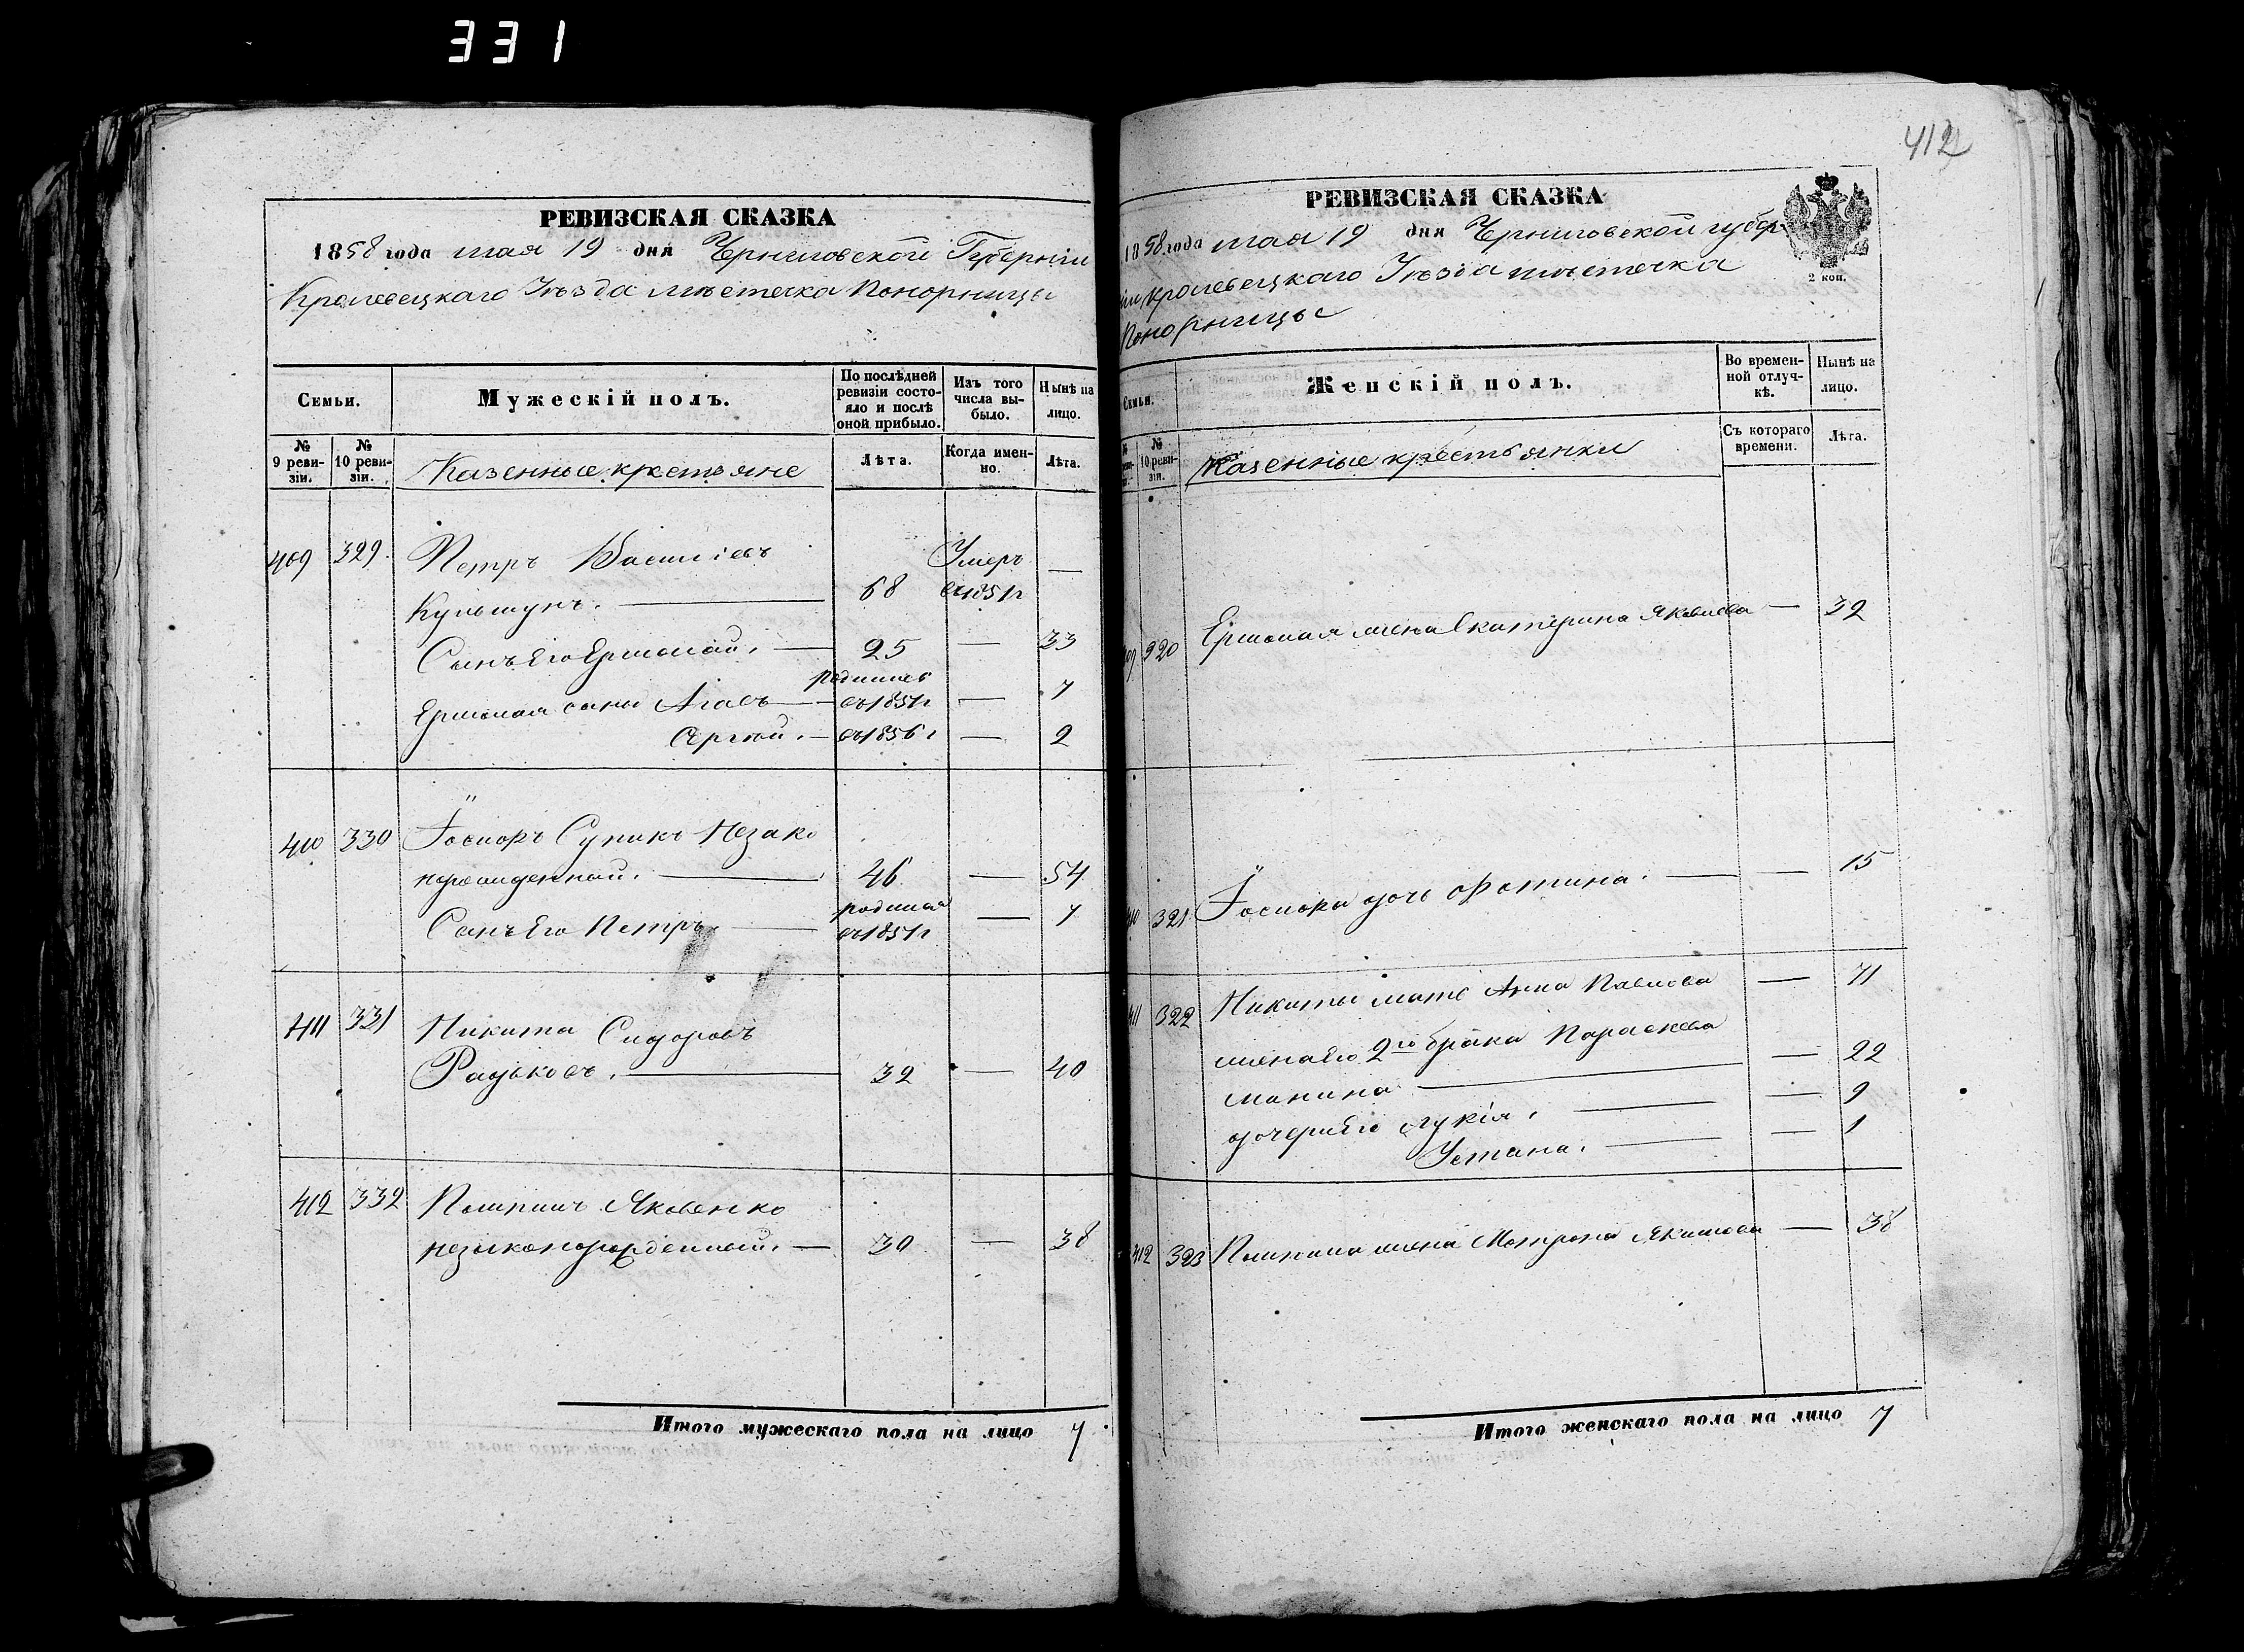 331
РЕВИЗСКАЯ СКАЗКА
1858 года мая 19 дня Черниговской Губерніи
Кролевецкаго Уѣзда мѣстечка Понорницы
Семьи.
Мужескій полъ.
По послѣдней ревизіи состояло и послѣ оной прибыло.
Изъ того числа выбыло.
Нынѣ на лицо.
№ 9 ревизіи.
№ 10 ревизіи.
Казенные крестьяне
Лѣта.
Когда именно.
Лѣта.
409 329. Петръ Василіевъ Умеръ —
68 въ 1851 г
Сынъ его Ермолай. — 25 — 33
родился
Ермолая сыны — въ 1851 г — 7
Сергѣй. — въ 1856 г — 2
410 330 Іосифъ Супикъ Незако
норожденный. — 46 — 54
Сынъ его Петръ. — родился въ 1851 г — 7
411 331 Никита Сидоровъ
Радьковъ. — 32 — 40
412 332 Яковенко
незаконорожденный. — 30 — 38
Итого мужескаго пола на лицо 7
412
РЕВИЗСКАЯ СКАЗКА
1858 года мая 19 дня Черниговской губер
ніи Кролевецкаго Уѣзда мѣстечка
Понорницы
2 коп.
Семьи.
Женскій полъ.
Во временной отлучкѣ.
Нынѣ на лицо.
№ 10 ревизіи.
Казенные крестьянки
Съ котораго времени.
Лѣта.
320 Ермолая жена Екатерина Яковлева — 32
321 дочь Фотина. — — 15
411 322 Никиты мать Анна Павлова — 71
жена его 2го брака Параскева
— — 22
дочери его Лукія. — — 9
Устина. — — 1
412 323 жена Матрона Якимова — 38
Итого женскаго пола на лицо 7